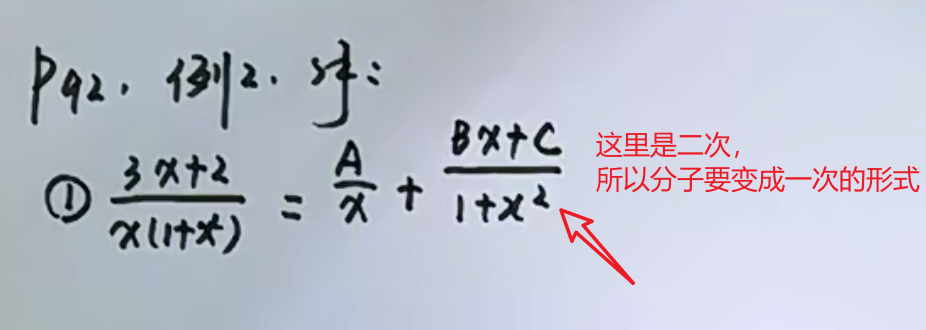 P92. 例2.
① (3x+2)/(x(1+x²)) = A/x + (Bx+C)/(1+x²)
这里是二次，
所以分子要变成一次的形式